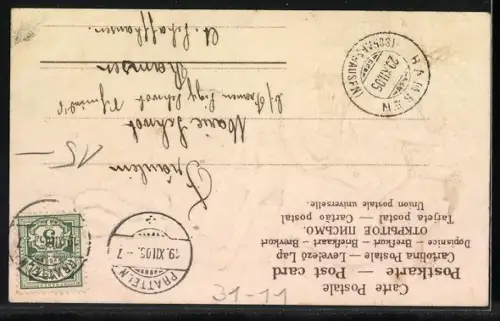 Carte Postale
Postkarte — Post card
Cartolina Postale — Levelező Lap
Dopisnice — Brefkort — Briefkaart — Brevkort
ОТКРЫТОЕ ПИСЬМО.
Tarjeta postal — Cartão postal
Union postale universelle.
PRATTELN
19.XII.05.-7
RAMSEN
(SCHAFFHAUSEN)
20.XII.05
Fräulein
Marie
Ramsen
Ct. Schaffhausen
15-
31-11